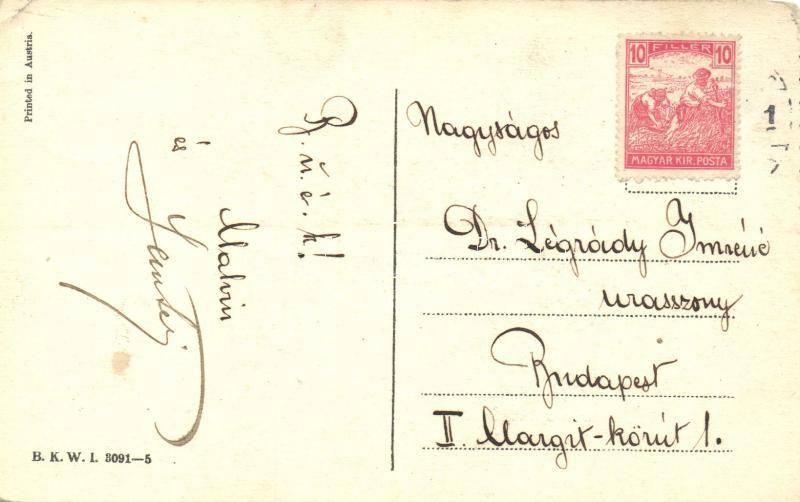 Printed in Austria.
B. ú. é. k!
Malvin
és
B. K. W. I. 3091—5
10 FILLÉR 10
MAGYAR KIR. POSTA
1
Nagyságos
Dr. Légrády Imréné
urasszony
Budapest
II. Margit-körút 1.